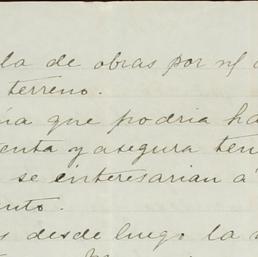 la de obras por
terreno.
que podria ha
enta y asegura ten
se interesarian á
nto.
s desde luego la